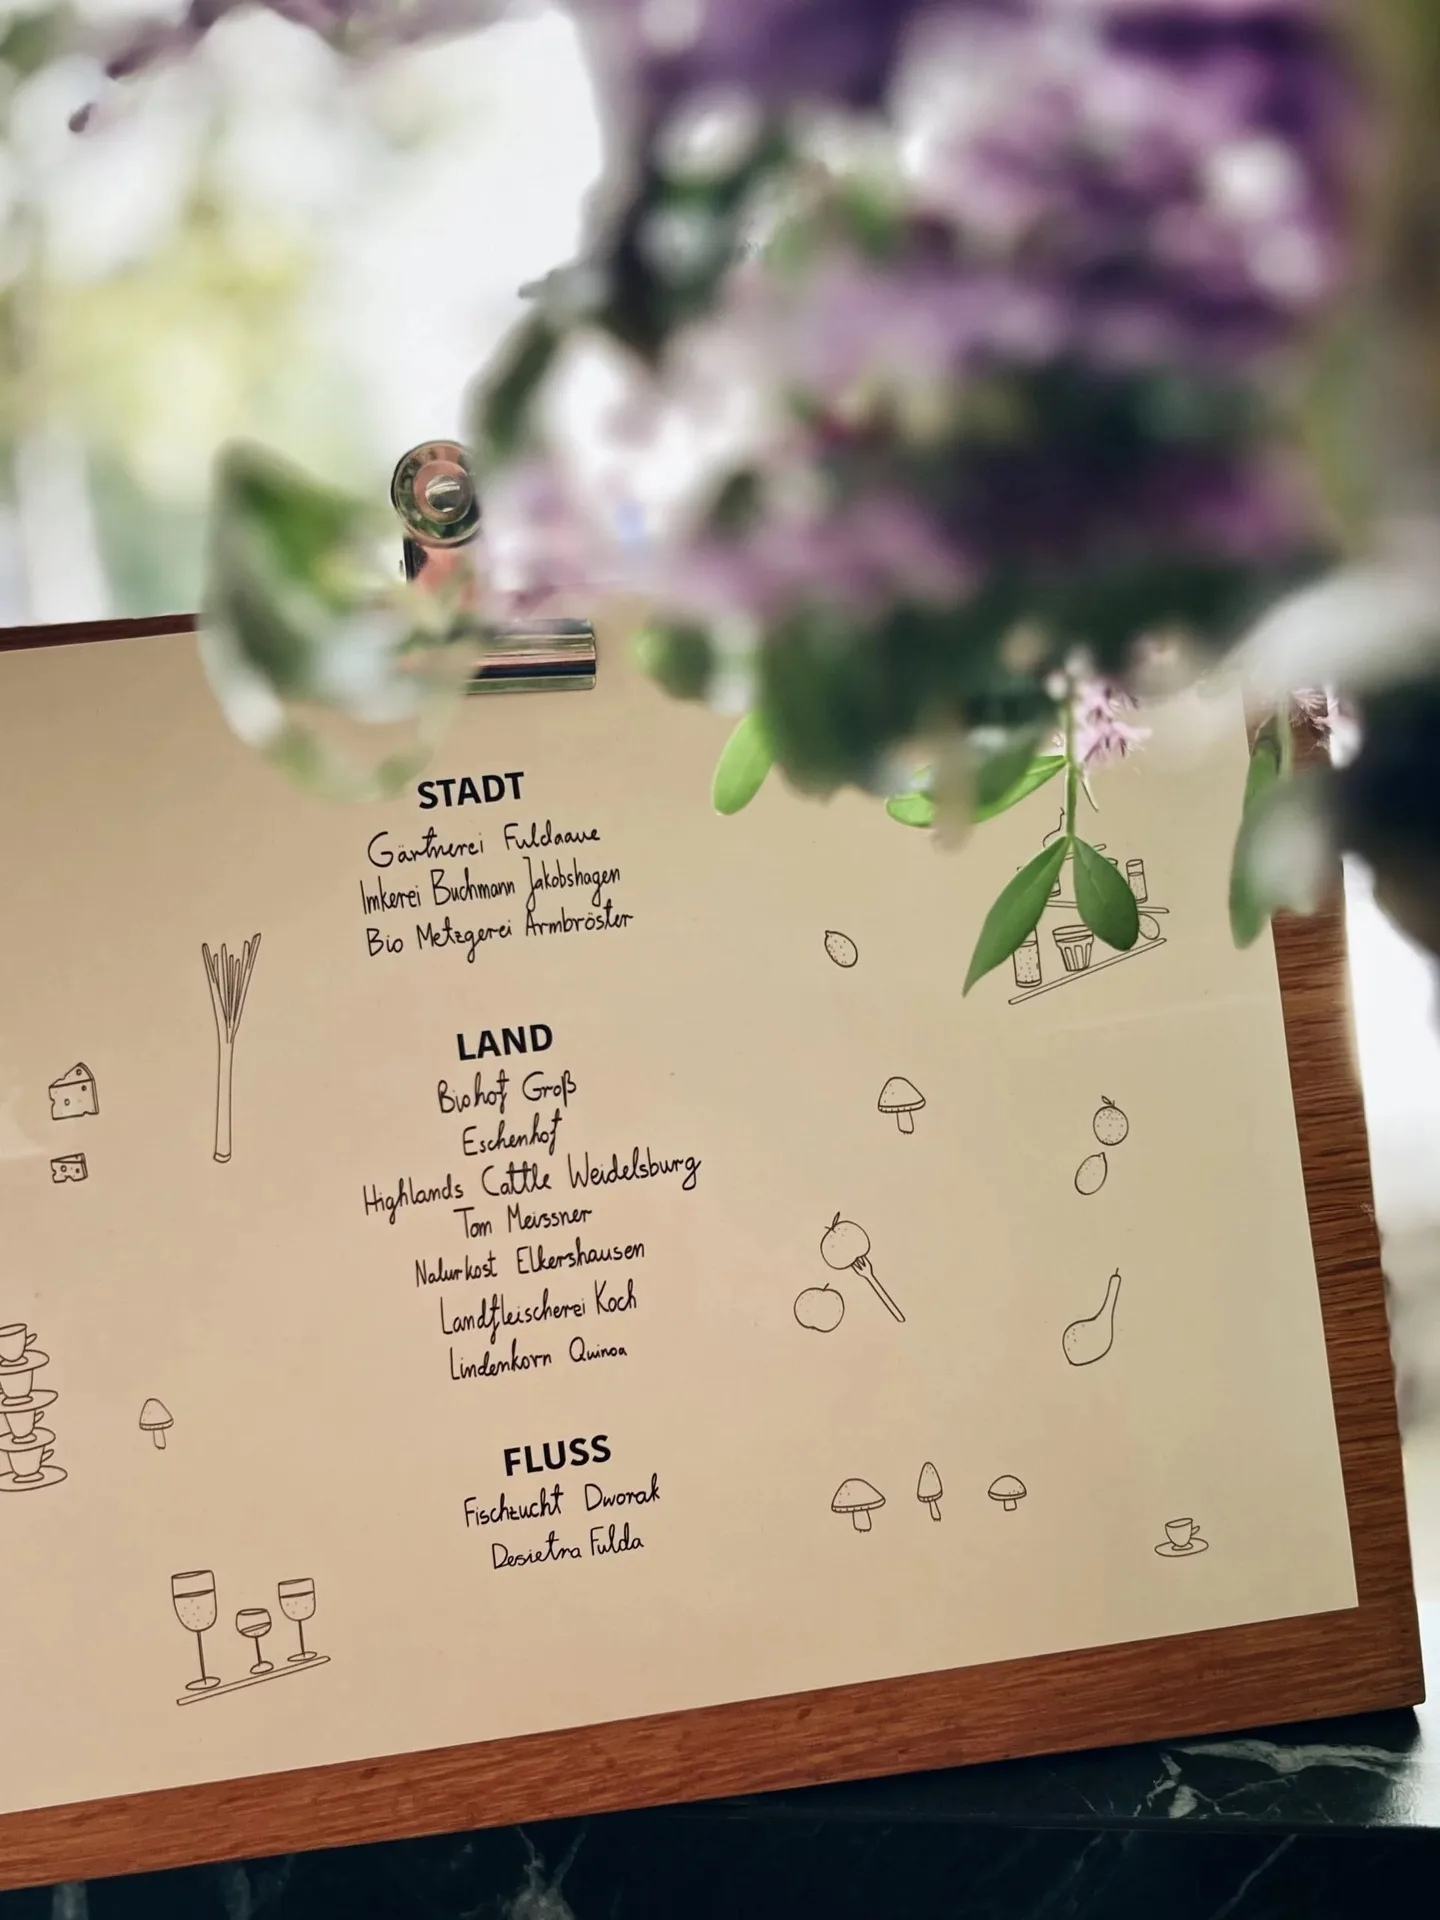 STADT
Gärtnerei Fuldaaue
Imkerei Buchmann Jakobshagen
Bio Metzgerei Armbröster
LAND
Biohof Groß
Eschenhof
Highlands Cattle Weidelsburg
Tom Meissner
Naturkost Elkershausen
Landfleischerei Koch
Lindenkorn Quinoa
FLUSS
Fischzucht Dworak
Desietra Fulda